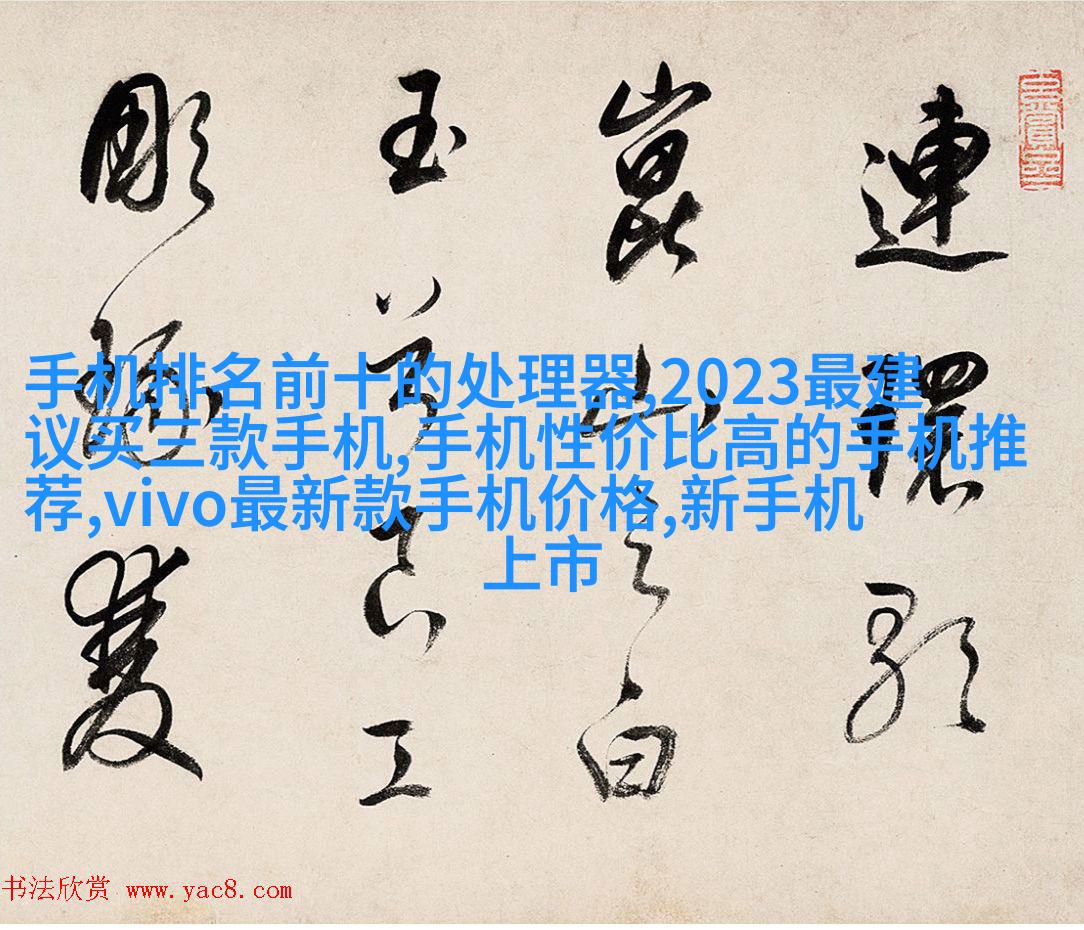 連環歌
崑山之白
玉兮工
彫雙
手机排名前十的处理器,2023最建
议买三款手机,手机性价比高的手机推
荐,vivo最新款手机价格,新手机
上市
书法欣赏 www.yac8.com